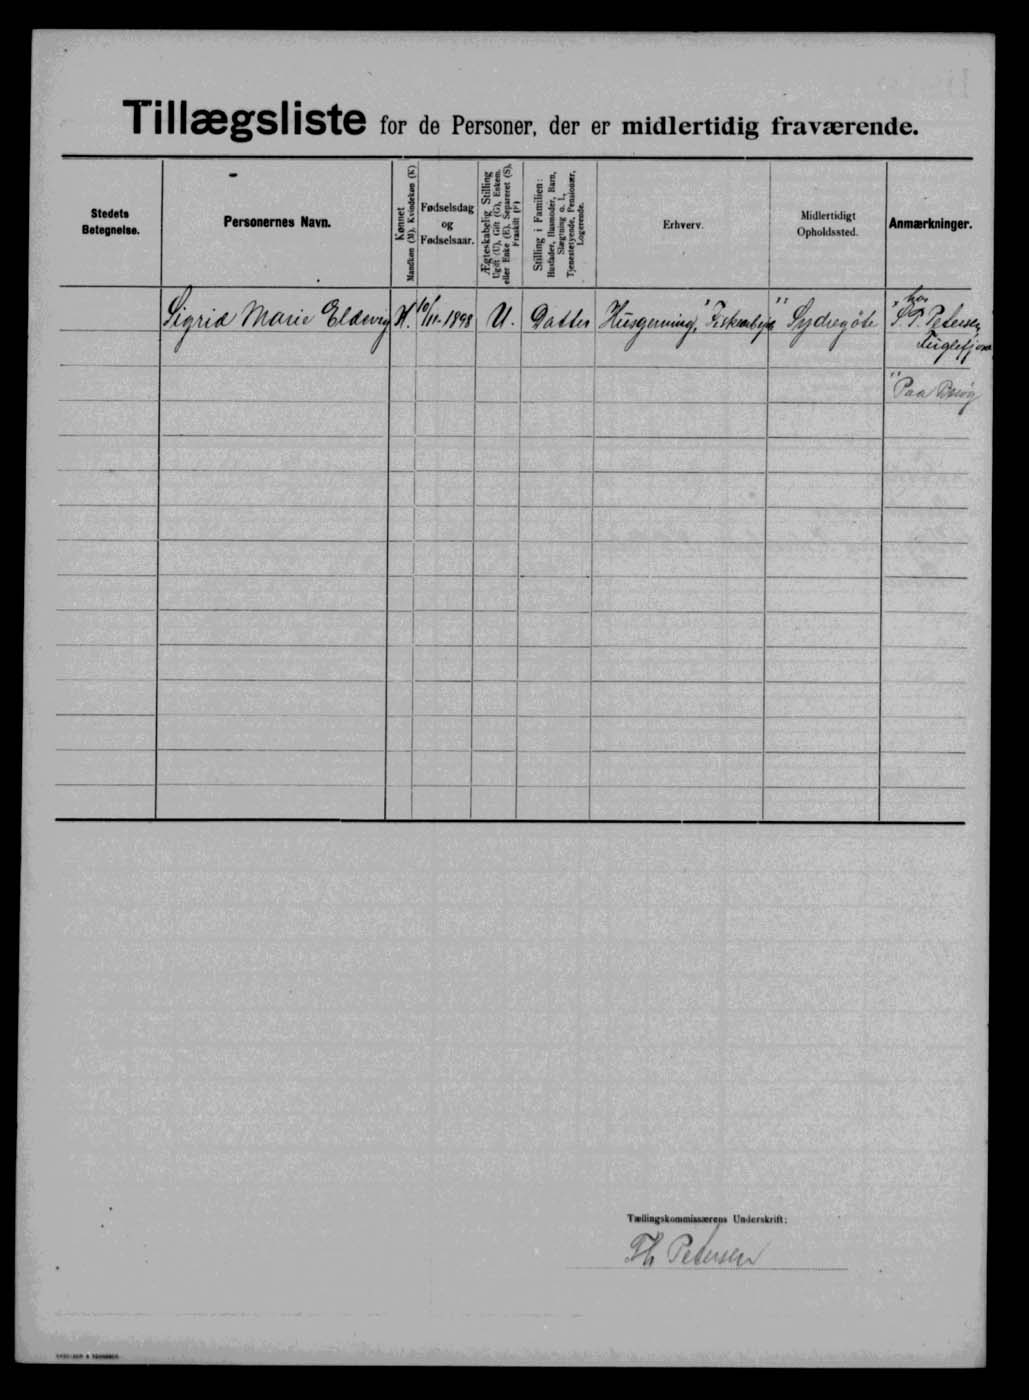 Tillægsliste for de Personer, der er midlertidig fraværende.
Stedets
Betegnelse.
Personernes Navn.
Kønnet
Mandkøn (M). Kvindekøn (K)
Fødselsdag
og
Fødselsaar.
Ægteskabelig Stilling
Ugift (U), Gift (G), Enkem.
eller Enke (E), Separeret (S),
Fraskilt (F)
Stilling i Familien:
Husfader, Husmoder, Barn,
Slægtning o. l.,
Tjenestetyende, Pensionær,
Logerende.
Erhverv.
Midlertidigt
Opholdssted.
Anmærkninger.
Sigrid Marie Eldevig K. 10/11-1898 U. Datter Husgerning, Sydregöte
" hos
P. Petersen
"Paa Besøg
Tællingskommissærens Underskrift:
Th Petersen